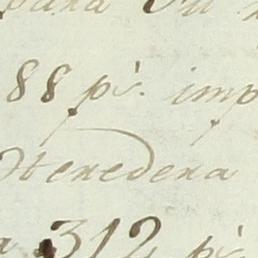 para
88 p.s imp
Heredera
a 312 p.s